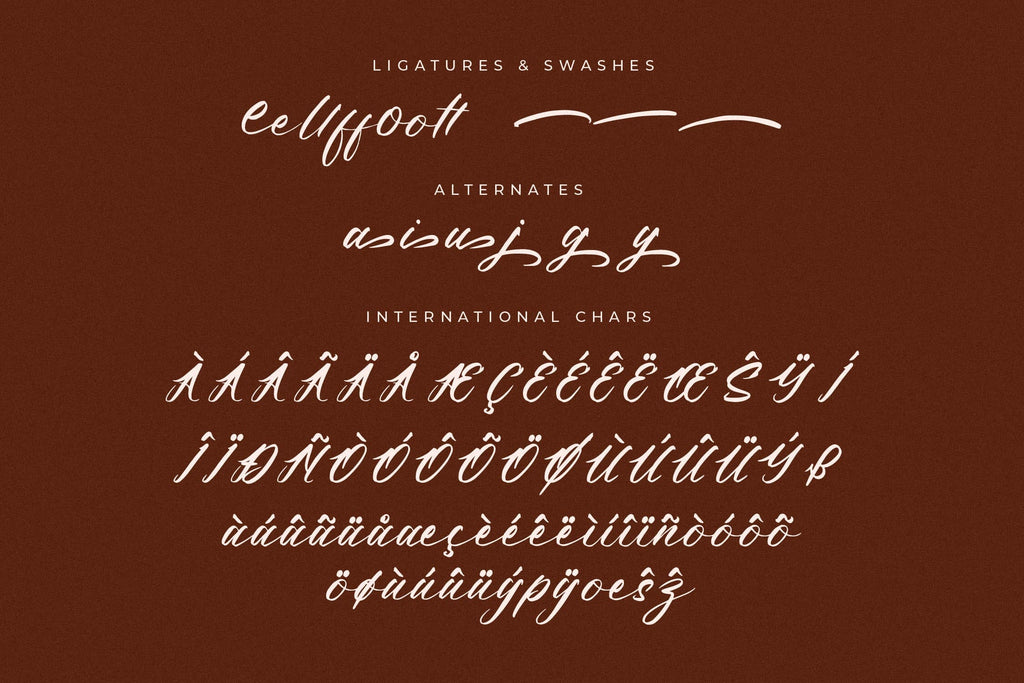 LIGATURES & SWASHES
eellffoott
ALTERNATES
aiujgy
INTERNATIONAL CHARS
ÀÁÂÃÄÅÆÇÈÉÊËŒŜŸÍ
ÎÏÐÑÒÓÔÕÖØÙÚÛÜÝß
àáâãäåæçèéêëìíîïñòóôõ
öøùúûüýþÿœŝẑ